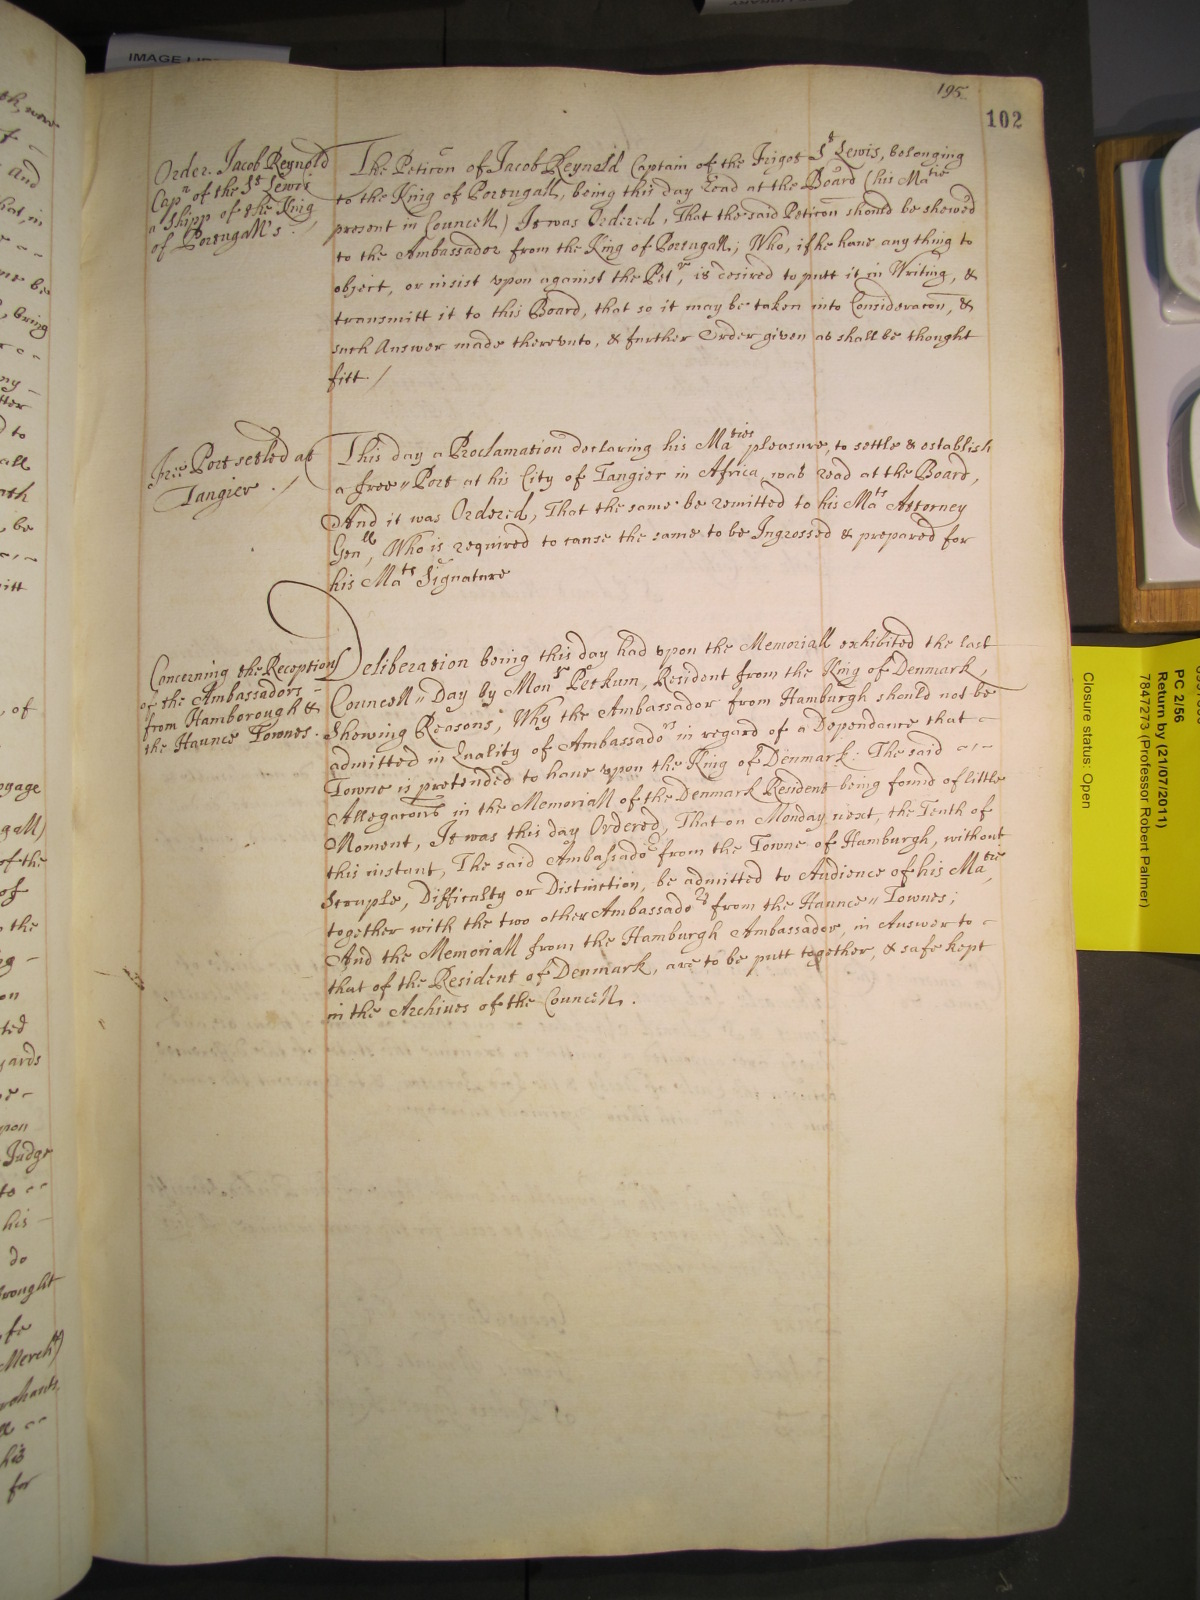 195
102
Order. Jacob Reynold
Capn of the St Lewis
a Shipp of the King
of Portugall's.
The Peticon of Jacob Reynold Captain of the Frigot St Lewis, belonging
to the King of Portugall, being this day read at the Board (his Matie
present in Councell) It was Ordered, That the said Peticon should be shewed
to the Ambassador from the King of Portugall; Who, if he haue any thing to
object, or insist vpon against the Petr, is desired to putt it in Writing, &
transmitt it to this Board, that so it may be taken into Consideracon, &
such Answer made therevnto, & further Order given as shall be thought
fitt /
Free Port setled at
Tangier. /
This day a Proclamation declaring his Maties pleasure, to settle & establish
a free Port at his City of Tangier in Africa, was read at the Board,
And it was Ordered, That the same be remitted to his Mats Attorney
Genll, Who is required to cause the same to be Ingrossed & prepared for
his Mats Signature
Concerning the Reception
of the Ambassadors
from Hamborough &
the Haunce Townes.
Deliberation being this day had vpon the Memoriall exhibited the last
Councell Day by Monsr Petkum, Resident from the King of Denmark,
Shewing Reasons, Why the Ambassador from Hamburgh should not be
admitted in Quality of Ambassador in regard of a Dependance that
Towne is pretended to haue vpon the King of Denmark: The said
Allegacons in the Memoriall of the Denmark Resident being found of little
Moment, It was this day Ordered, That on Monday next, the Tenth of
this instant, The said Ambassador from the Towne of Hamburgh, without
Scruple, Difficulty or Distinction, be admitted to Audience of his Matie,
together with the two other Ambassadors from the Haunce Townes;
And the Memoriall from the Hamburgh Ambassador, in Answer to
that of the Resident of Denmark, are to be putt together, & safe kept
in the Archives of the Councell.
PC 2/56
Return by (21/07/2011)
7847273 (Professor Robert Palmer)
Closure status: Open